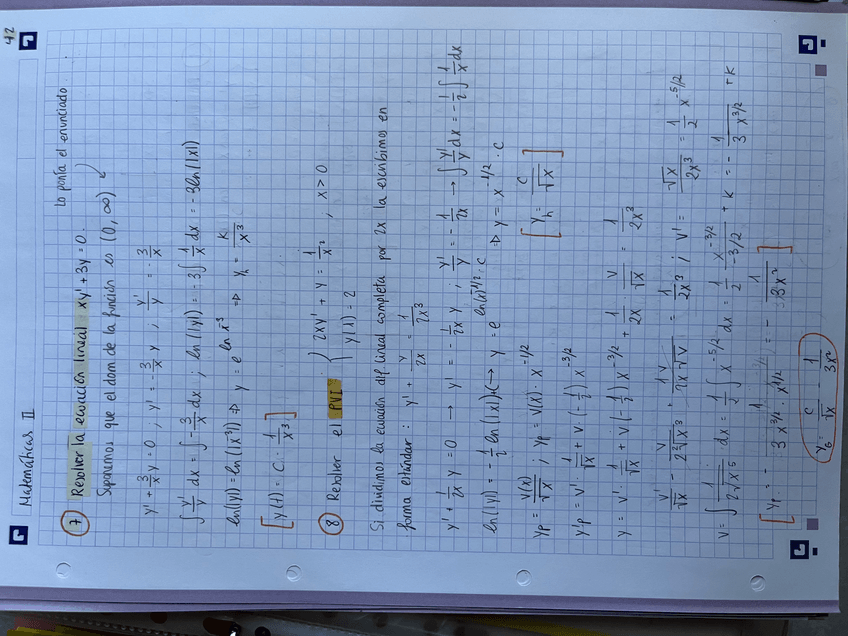 42
Matemáticas II
Lo ponía el enunciado.
7 Resolver la ecuación lineal xy' + 3y = 0.
Suponemos que el dom de la función es (0, ∞)
y' + 3/x y = 0 ; y' = -3/x y ; y'/y = -3/x
∫ y'/y dx = ∫ -3/x dx ; ln(|y|) = -3∫ 1/x dx = -3ln(|x|)
ln(|y|) = ln(|x^-3|) ⇒ y = e^ln x^-3 ⇒ y_h = K/x^3
[y(t) = C · 1/x^3]
8 Resolver el PVI { 2xy' + y = 1/x^2 , x > 0
y(1) = 2
Si dividimos la ecuación dif lineal completa por 2x la escribimos en
forma estándar : y' + y/2x = 1/2x^3
y' + 1/2x y = 0 → y' = -1/2x y ; y'/y = -1/2x → ∫ y'/y dx = -1/2 ∫ 1/x dx
ln(|y|) = -1/2 ln(|x|)+C → y = e^ln(x)^-1/2 · C ⇒ y = x^-1/2 · C
y_p = v(x)/√x ; y_p = v(x) · x^-1/2 [y_h = C/√x]
y'_p = v' · 1/√x + v (-1/2) x^-3/2
y = v' · 1/√x + v (-1/2) x^-3/2 + 1/2x · v/√x = 1/2x^3
v'/√x - v/2√x^3 + 1v/2x√v = 1/2x^3 ; v' = √x/2x^3 = 1/2 x^-5/2
v = ∫ 1/2√x^5 · dx = 1/2 ∫ x^-5/2 dx = 1/2 x^-3/2/-3/2 + K = - 1/3x^3/2 + K
[y_p = - 1/3x^3/2 · x^1/2 = - 1/3x^2]
y_G = C/√x - 1/3x^2